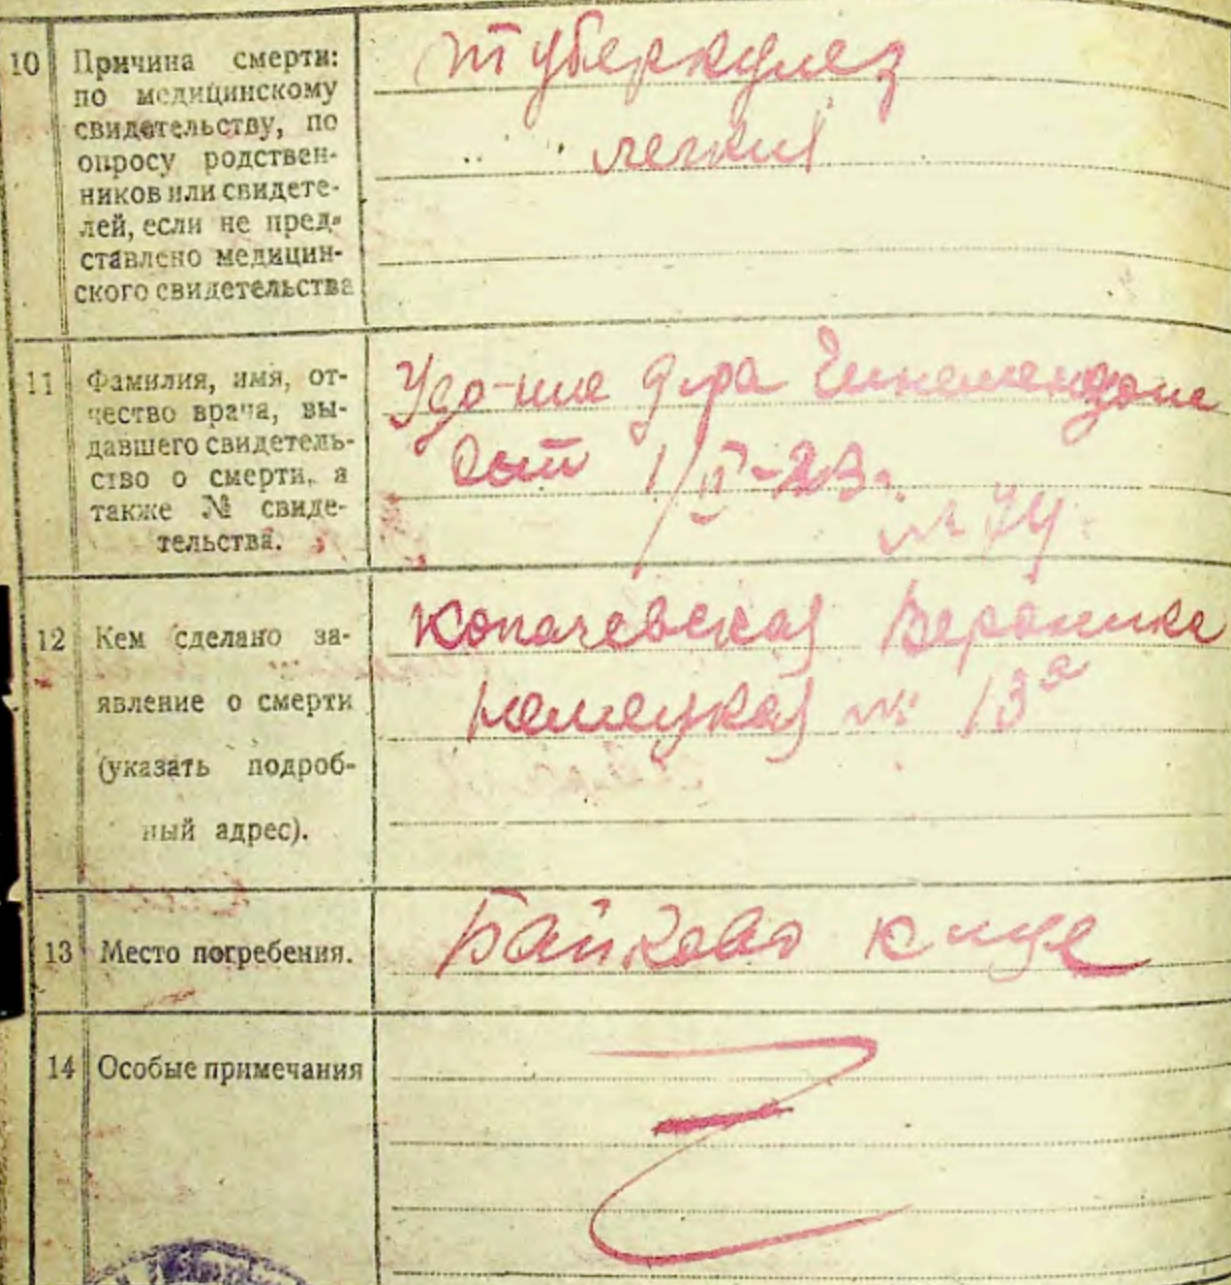 10 Причина смерти:
по медицинскому
свидетельству, по
опросу родствен-
ников или свидете-
лей, если не пред-
ставлено медицин-
ского свидетельства
туберкулез
легких
11 Фамилия, имя, от-
чество врача, вы-
давшего свидетель-
ство о смерти, а
также № свиде-
тельства.
Удо-ние д-ра
1/II-23г.
№ 74.
12 Кем сделано за-
явление о смерти
(указать подроб-
ный адрес).
Копачевская Вероника
Немецкая № 13а
13 Место погребения.
Байково к-ище
14 Особые примечания